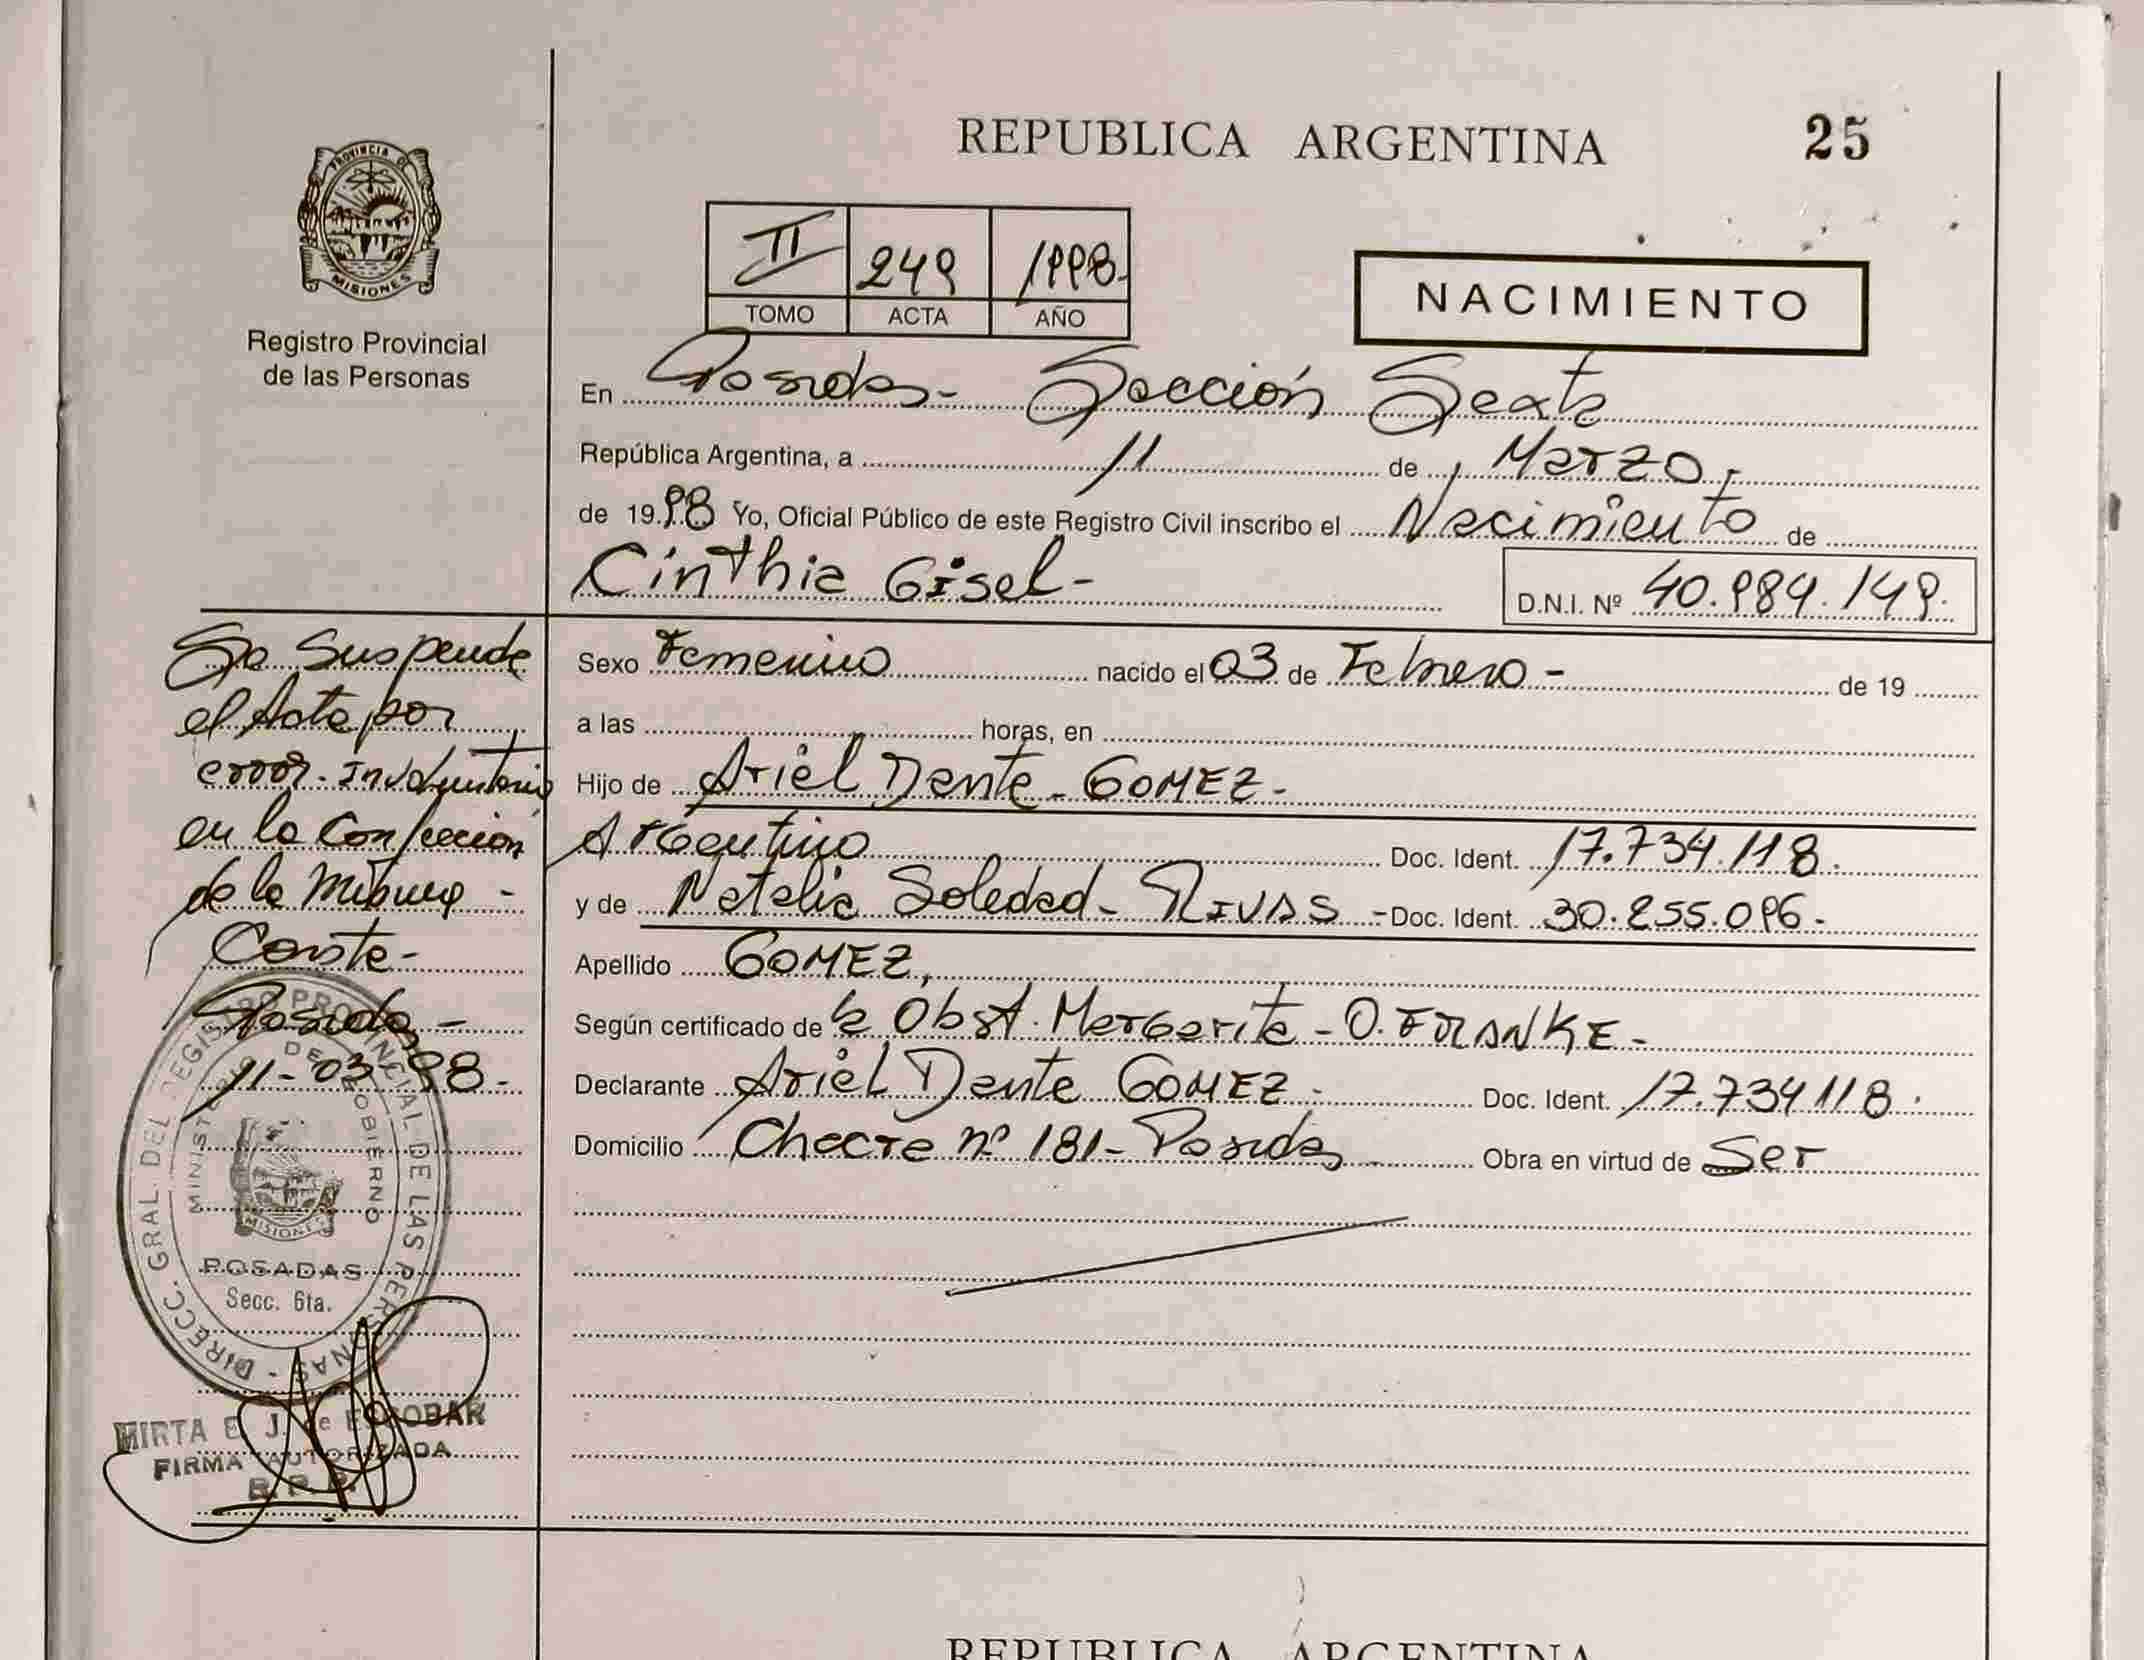 REPUBLICA ARGENTINA
25
PROVINCIA D
MISIONES
Registro Provincial
de las Personas
II 249 1998.
TOMO ACTA AÑO
NACIMIENTO
En Posadas - Sección Sexta
República Argentina, a 11 de Marzo,
de 1998 Yo, Oficial Público de este Registro Civil inscribo el Nacimiento de
Cinthia Gisel -
D.N.I. Nº 40.989.149.
Sexo Femenino nacido el 03 de Febrero - de 19
a las horas, en
Hijo de Ariel Dante - GOMEZ -
Argentino Doc. Ident. 17.734.118.
y de Natalia Soledad - RIVAS - Doc. Ident. 30.255.096.
Apellido GOMEZ,
Según certificado de la Obst. Margarita - O. FRANKE -
Declarante Ariel Dante GOMEZ. Doc. Ident. 17.734118.
Domicilio Chacra nº 181 - Posadas Obra en virtud de Ser
Se Suspende
el Acta por
error - Involuntario
en la Confección
de la Misma -
Conste -
Posadas -
11-03-98.
DIRECC. GRAL. DEL REGISTRO PROVINCIAL DE LAS PERSONAS -
MINISTE DE GOBIERNO
MISIONES
POSADAS
Secc. 6ta.
MIRTA E. J. de ESCOBAR
FIRMA AUTORIZADA
REPUBLICA ARGENTINA